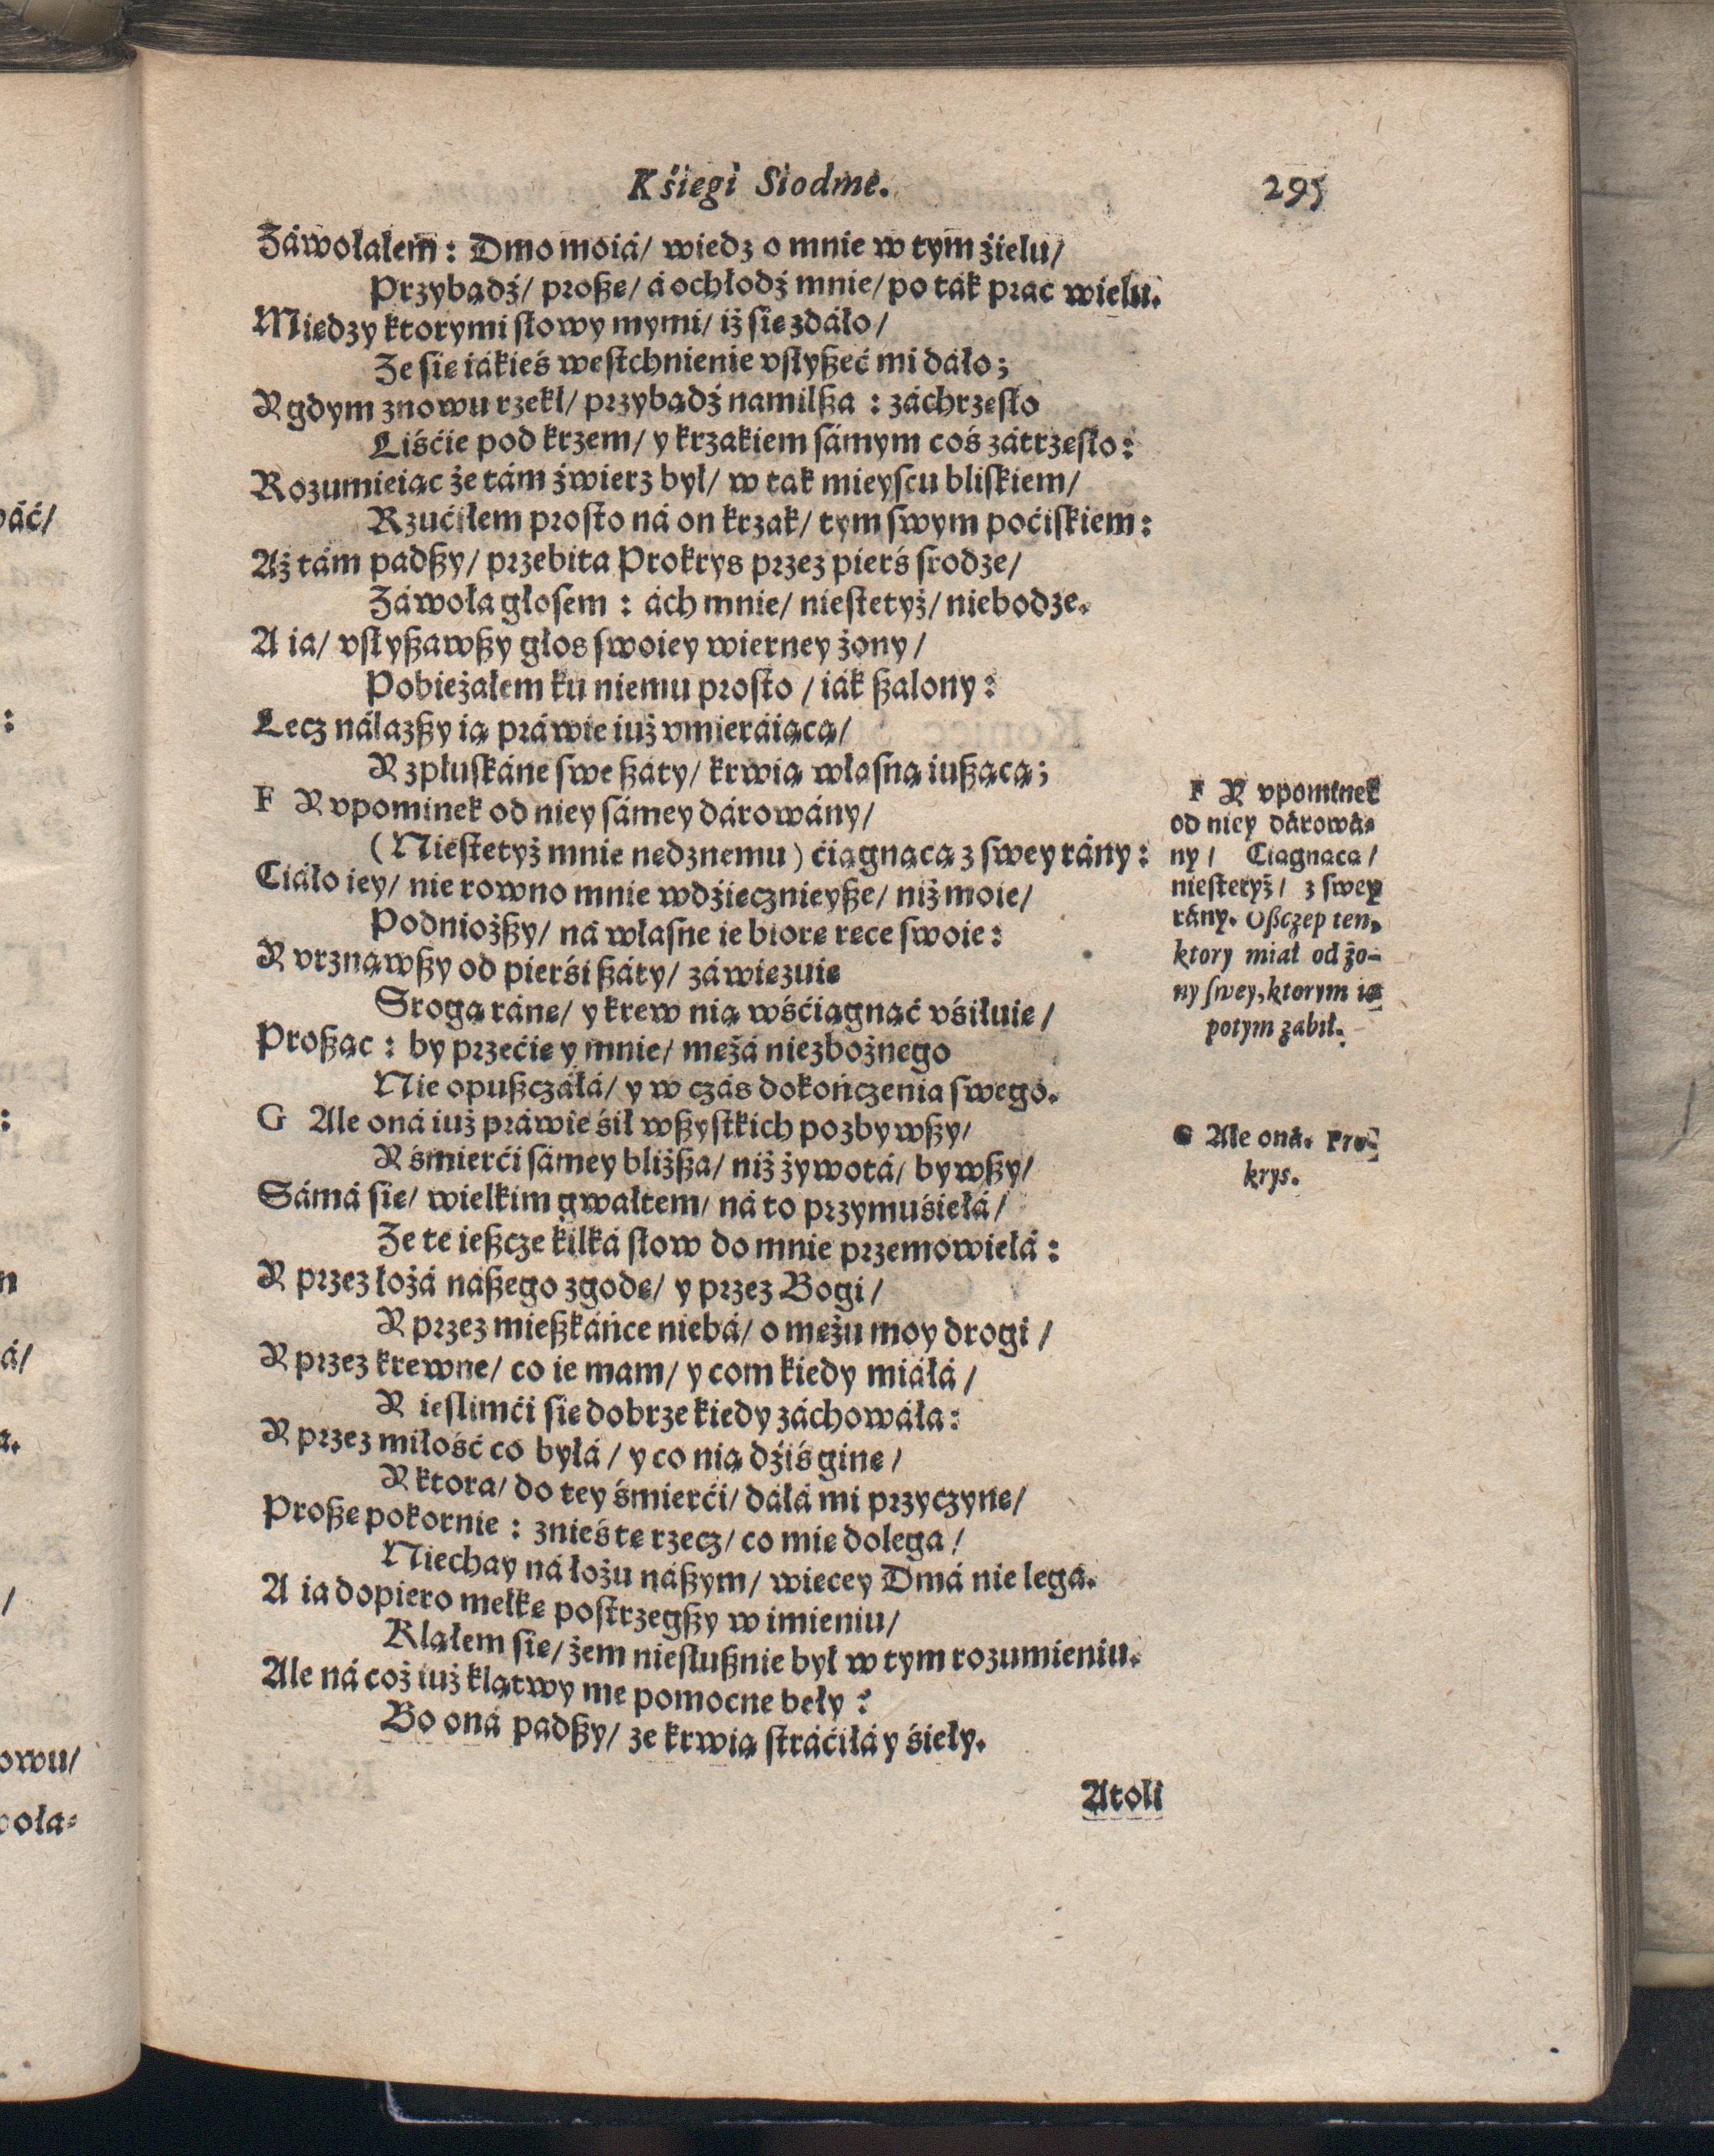 Kśiegi Siodme. 295
Záwołałem: Dmo moiá/ wiedz o mnie w tym źielu/
Przybądź/ proßę/ á ochłodź mnie/ po ták prac wielu.
Miedzy ktorymi słowy mymi/ iż sie zdáło/
Ze sie iákieś westchnienie vslyßeć mi dáło;
Y gdym znowu rzekł/ przybądź namilßa: záchrzesło
Liśćie pod krzem/ y krzakiem sámym coś zátrzesło:
Rozumieiąc że tám źwierz był/ w tak mieyscu bliskiem/
Rzućiłem prosto ná on krzak/ tym swym poćiskiem:
Aż tám padßy/ przebita Prokrys przez pierś srodze/
Záwoła głosem: ách mnie/ niestetyż/ niebodze.
A ia/ vslyßawßy głos swoiey wierney żony/
Pobieżałem ku niemu prosto/ iák ßalony:
Lecz nálazßy ią práwie iuż vmieráiącą/
Y zpluskáne swe ßáty/ krwią własną iußącą;
F Y vpominek od niey sámey dárowány/
(Niestetyż mnie nedznemu) ćiągnącą z swey rány:
Ciáło iey/ nie rowno mnie wdźiecznieyße/ niż moie/
Podniożßy/ ná własne ie biorę rece swoie:
Y vrznąwßy od pierśi ßáty/ záwiezuie
Srogą ránę/ y krew nią wśćiągnąć vśiłuie/
Proßąc: by przećie y mnie/ mężá niezbożnego
Nie opußczáłá/ y w czás dokończenia swego.
G Ale oná iuż práwie śił wßystkich pozbywßy/
Y śmierći sámey bliżßa/ niż żywotá/ bywßy/
Sámá sie/ wielkim gwałtem/ ná to przymuśiełá/
Ze te ießcze kilká słow do mnie przemowiełá:
Y przez łożá náßego zgodę/ y przez Bogi/
Y przez mießkáńce niebá/ o mężu moy drogi/
Y przez krewne/ co ie mam/ y com kiedy miáłá/
Y ieslimći sie dobrze kiedy záchowáła:
Y przez miłość co byłá/ y co nią dźiś ginę/
Y ktora/ do tey śmierći/ dáłá mi przyczynę/
Proßę pokornie: znieś tę rzecz/ co mie dolega/
Niechay ná łożu náßym/ wiecey Dmá nie lega.
A ia dopiero mełkę postrzegßy w imieniu/
Kląłem sie/ żem niesłußnie był w tym rozumieniu.
Ale ná coż iuż klątwy me pomocne beły?
Bo oná padßy/ ze krwią stráćiłá y śieły.
Atoli
F Y vpominek
od niey dárowá-
ny/ Ciągnaca/
niestetyż/ z swey
rány. Oßczep ten,
ktory miał od żo-
ny swey, ktorym ią
potym zabił.
G Ale oná. Pro-
krys.